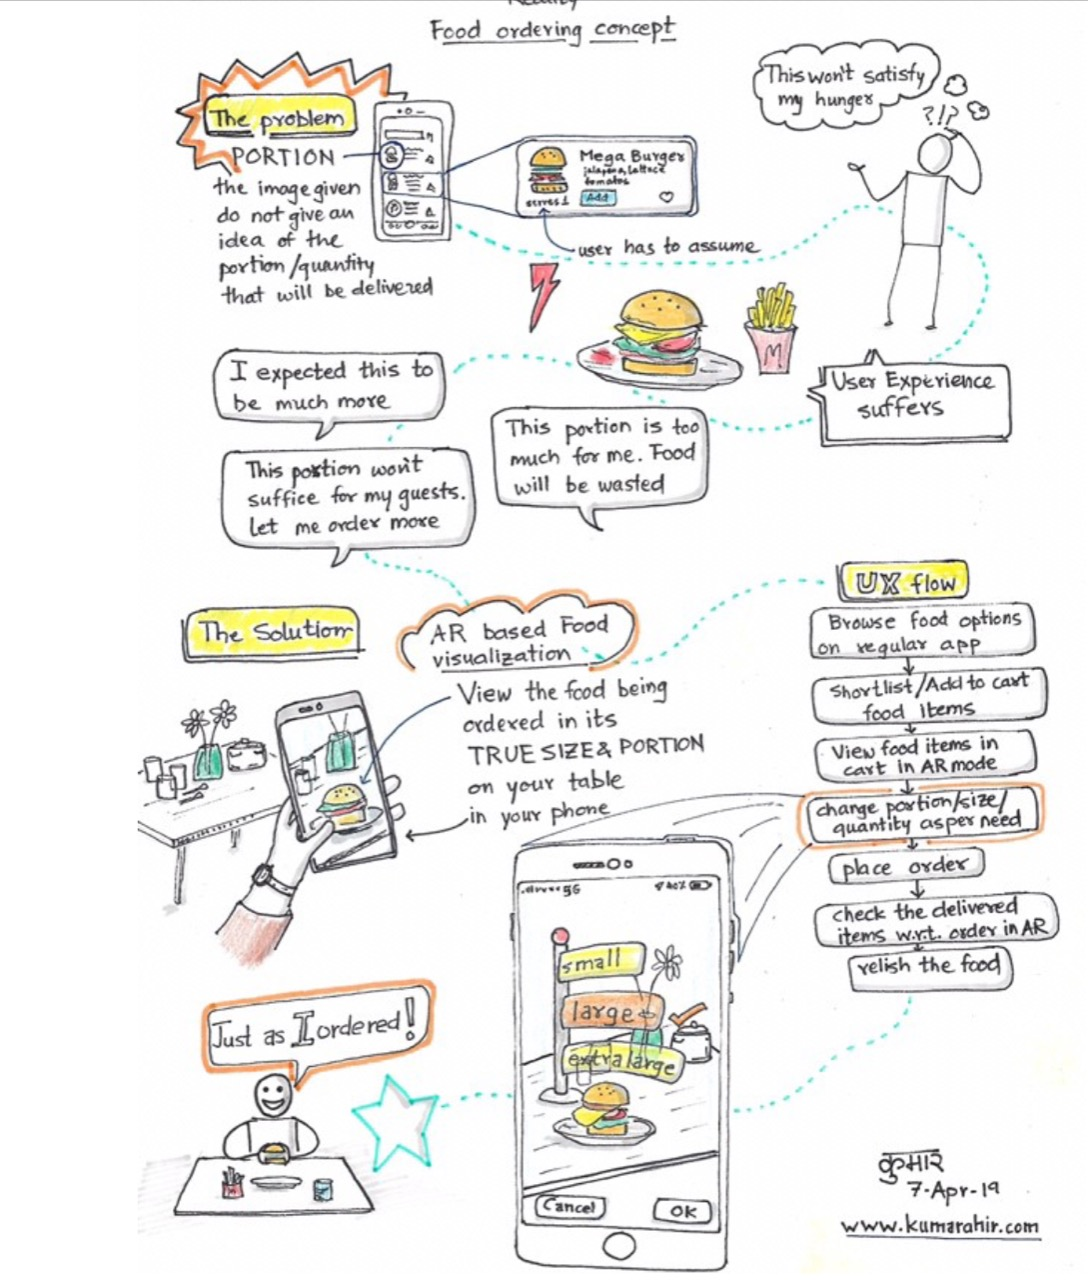 Reality
Food ordering concept
The problem
PORTION
the image given
do not give an
idea of the
portion/quantity
that will be delivered
Mega Burger
jalapeno, lettuce
tomatoes
Add
serves 1
user has to assume
This won't satisfy
my hunger
?!!?
M
User Experience
suffers
I expected this to
be much more
This portion won't
suffice for my guests.
Let me order more
This portion is too
much for me. Food
will be wasted
The Solution
AR based Food
visualization
View the food being
ordered in its
TRUE SIZE & PORTION
on your table
in your phone
UX flow
Browse food options
on regular app
Shortlist/Add to cart
food Items
View food items in
cart in AR mode
change portion/size/
quantity as per need
place order
check the delivered
items w.r.t. order in AR
relish the food
5G
40%
small
large
extra large
Cancel
OK
Just as I ordered!
कुमार
7-Apr-19
www.kumarahir.com